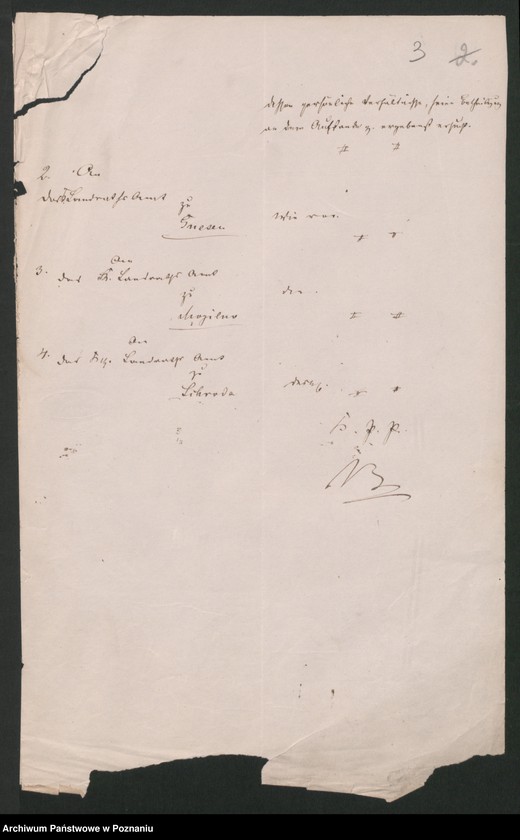 3 2.
dessen persönliche Verhältnisse, seine Betheiligung
an dem Aufstande p. ergebenst ersucht.
2. An
das K Landraths Amt
zu
Gnesen
wie vor.
3. An
das K. Landraths Amt
zu
Mogilno
4. An
das Kgl. Landraths Amt
zu
Schroda
desgl.
K. P. P.
Archiwum Państwowe w Poznaniu